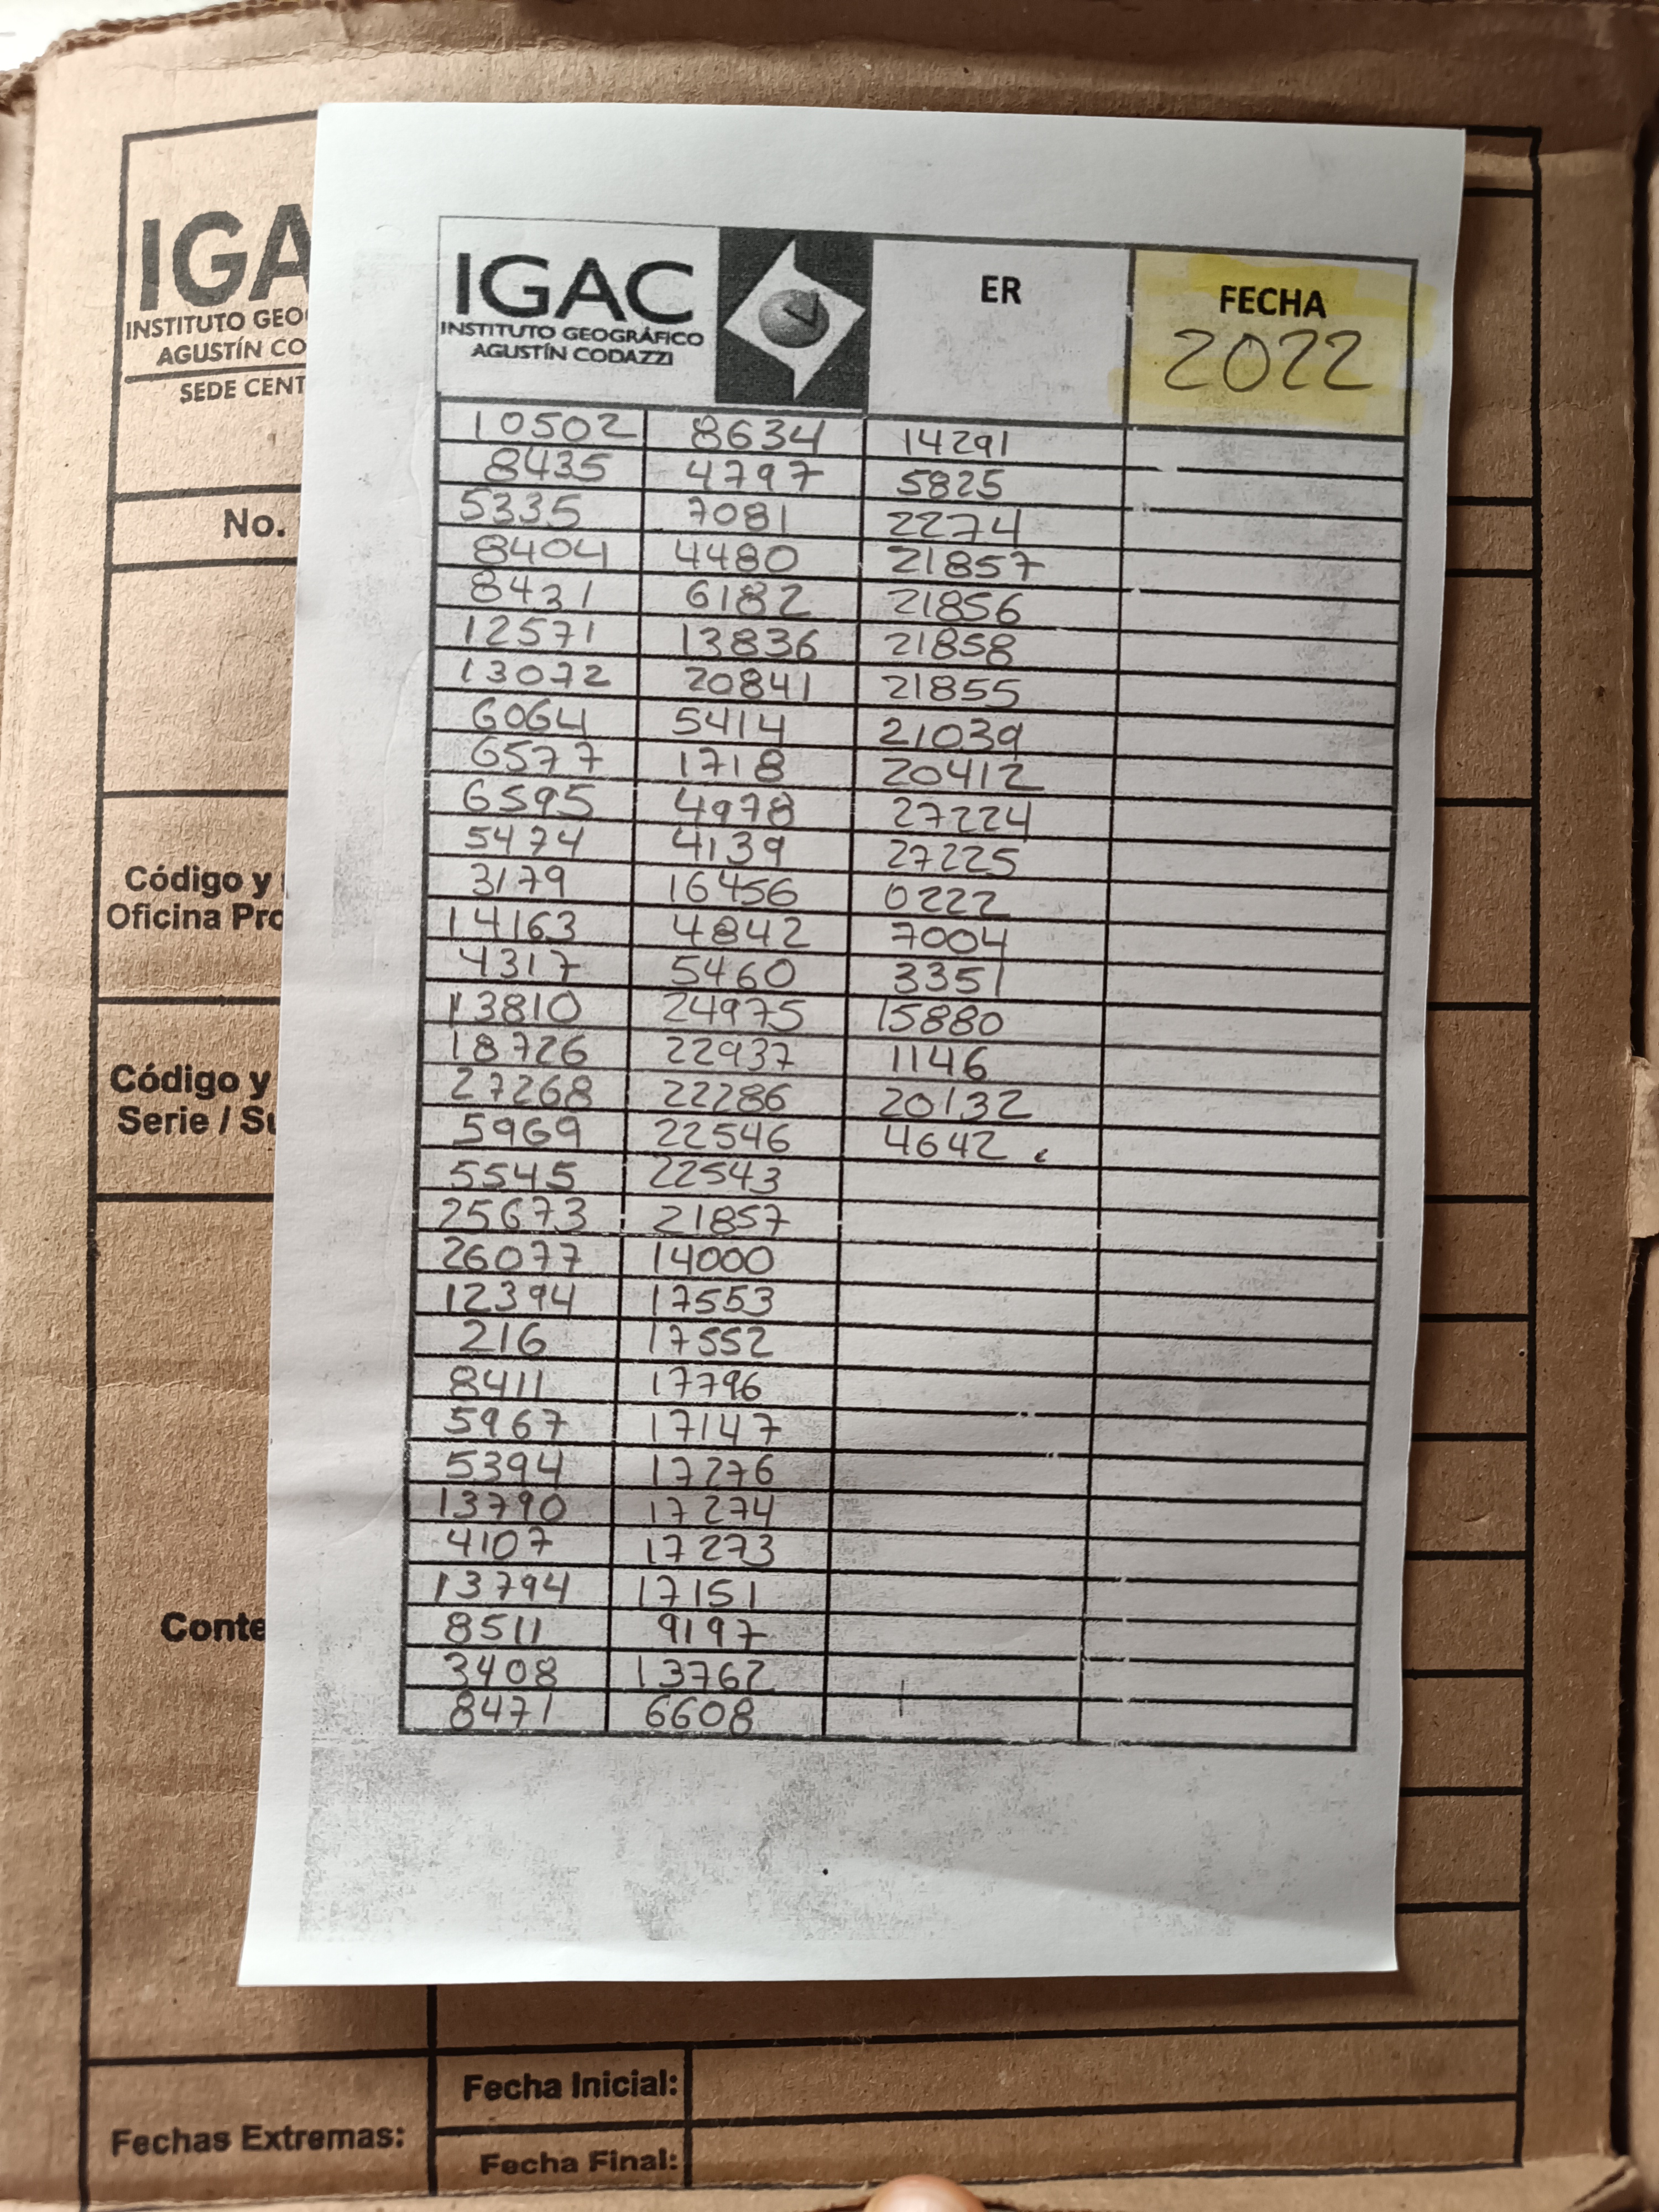 IGA
INSTITUTO GEO
AGUSTÍN CO
SEDE CENT
No.
Código y
Oficina Pro
Código y
Serie / Su
Conte
Fechas Extremas:
Fecha Inicial:
Fecha Final:
IGAC
INSTITUTO GEOGRÁFICO
AGUSTÍN CODAZZI
ER
FECHA
2022
10502 8634 14291
8435 4797 5825
5335 7081 2274
8404 4480 21857
8431 6182 21856
12571 13836 21858
13072 20841 21855
6064 5414 21039
6577 1718 20412
6595 4978 27224
5474 4139 27225
3179 16456 0222
14163 4842 7004
4317 5460 3351
13810 24975 15880
18726 22937 1146
27268 22286 20132
5969 22546 4642
5545 22543
25673 21857
26077 14000
12394 17553
216 17552
8411 17796
5967 17147
5394 17276
13790 17274
4107 17273
13794 17151
8511 9197
3408 13762
8471 6608